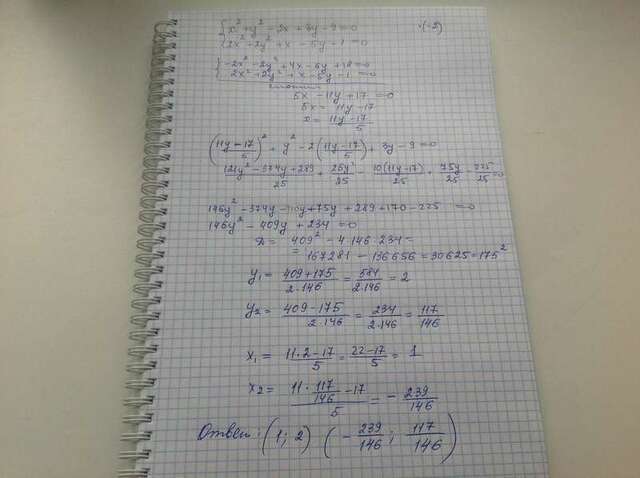 {x² + y² - 2x + 3y - 9 = 0 |·(-2)
{2x² + 2y² + x - 5y - 1 = 0
{-2x² - 2y² + 4x - 6y + 18 = 0
{2x² + 2y² + x - 5y - 1 = 0
5x - 11y + 17 = 0
5x = 11y - 17
x = (11y - 17)/5
((11y - 17)/5)² + y² - 2((11y - 17)/5) + 3y - 9 = 0
(121y² - 374y + 289)/25 + 25y²/25 - 10(11y - 17)/25 + 75y/25 - 225/25 = 0
146y² - 374y - 110y + 75y + 289 + 170 - 225 = 0
146y² - 409y + 234 = 0
D = 409² - 4·146·234 =
= 167281 - 136656 = 30625 = 175²
y₁ = (409 + 175)/(2·146) = 584/(2·146) = 2
y₂ = (409 - 175)/(2·146) = 234/(2·146) = 117/146
x₁ = (11·2 - 17)/5 = (22 - 17)/5 = 1
x₂ = (11·117/146 - 17)/5 = -239/146
Ответ: (1; 2) (-239/146; 117/146)